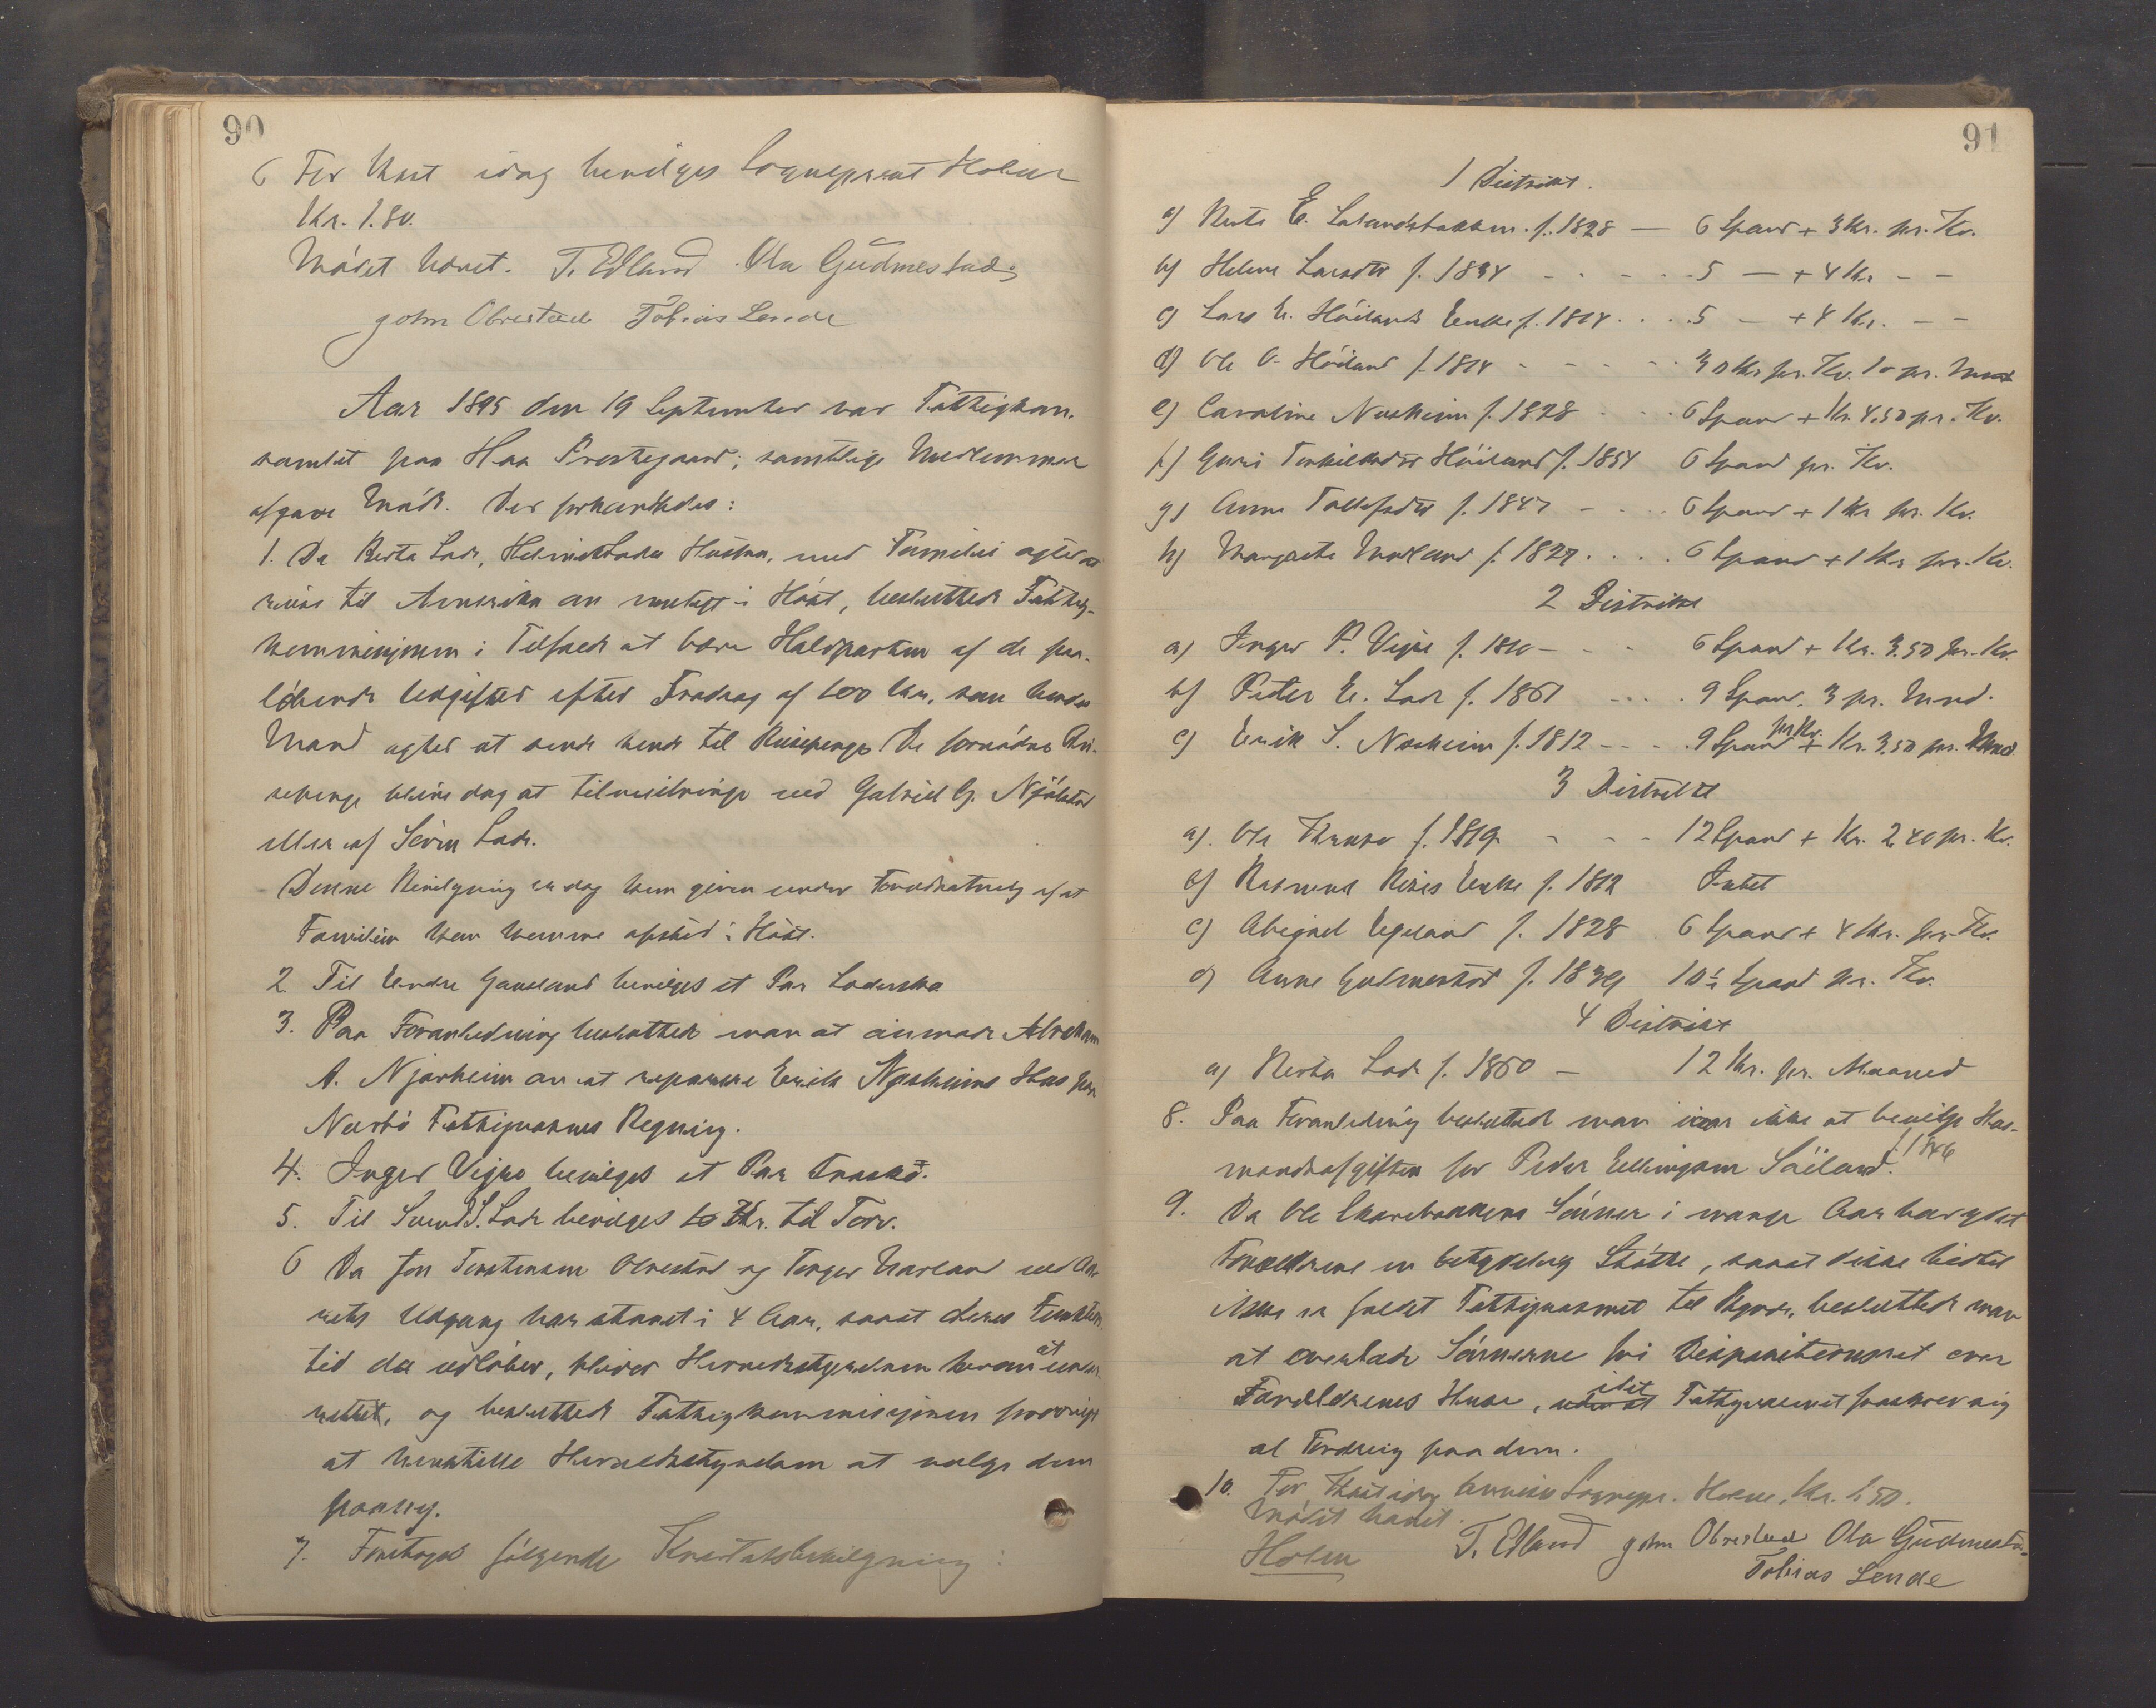 90
6 For Skat idag bevilges Sogneprest Holien
Kr. 1.80.
Mödet hævet. T. Edland Ola Gudmestad
John Obrestad Tobias Lende
Aar 1895 den 19 September var Fattigkom.
samlet paa Haa Prestegaard; samtlige Medlemmer
afgave Möde. Der forhandledes:
1. Da Berta Lode, Helmik Lodes Hustru, med Familie agter at
reise til Amerika an muligt i Höst, besluttede Fattig-
kommisjonen i Tilfælde at bære Halvparten af de paa-
löbende Udgifter efter Fradrag af 100 Kr., som hendes
Mand agter at sende hende til Reisepenge. De fornödne Rei-
sepenge bliver dog at tilveiebringe ved Gabriel G. Njölstad
eller af Sören Lode.
Denne Bevilgning er dog kun given under Forudsætning af at
Familien kan komme afsted i Höst.
2 Til Endre Gausland bevilges et Par Lædersko
3. Paa Foranledning besluttede man at anmode Abraham
A. Njærheim om at reparere Erik Nærheims Hus paa
Nærbö Fattigvæsens Regning.
4. Inger Vigre bevilges et Par Træsko.
5. Til Svend S. Lode bevilges 10 Kr. til Torv.
6 Da Jon Torstensen Obrestad og Torger Narland ved Aa-
rets Udgang har staaet i 4 Aar, saaat deres Funktions-
tid da udlöber, bliver Herredsstyrelsen herom at under-
rettet, og besluttede Fattigkommisjonen
at henstille Herredsstyrelsen at vælge dem
paany.
7. Foretoges fölgende Kvartalsbevilgning:
91
1 Distrikt.
a) Berte E. f. 1828 — 6 Spand + 3 Kr. pr. Kv.
b) Helene Larsdtr f. 1834 - - - - 5 — + 4 Kr - -
c) Lars E. Höilands Enke f. 1814 . . . 5 — + 4 Kr. - -
d) Ole O. Höiland f. 1814 - - - - 30 Kr pr. Kv. 10 pr. Mnd
e) Caroline Nærheim f. 1828 - - 6 Spand + Kr. 4.50 pr. Kv.
f) Guri Torkildsdtr Höiland f. 1854 6 Spand pr. Kv.
g) Anne Tollefsdtr f. 1847 - - . 6 Spand + 1 Kr pr. Kv.
h) Margrete Madland f. 1827 . . . . 6 Spand + 1 Kr pr. Kv.
2 Distrikt
a) Inger P. Vigre f. 1810 - - - 6 Spand + Kr. 3.50 pr. Kv.
b) Peder E. Lode f. 1861 - - . . 9 Spand. 3 pr. Mnd.
c) Erik S. Nærheim f. 1812 - - . 9 Spand pr Kv. + Kr. 3.50 pr. Mnd
3 Distrikt
a). Ole f. 1819 - - - 12 Spand + Kr. 2.40 pr. Kv.
b) Rasmus Enke f. 1812 Intet
c) Abigael Egeland f. 1828 6 Spand + 4 Kr. pr. Kv.
d) Anne Gudmestad f. 1839 10½ Spand pr. Kv.
4 Distrikt
a) Berta Lode f. 1860 — 12 Kr. pr. Maaned
8. Paa Foranledning besluttede man iaar ikke at bevilge Hus-
mandsafgiften for Peder Ellingsen Söiland. f. 1846
9. Da Ole Skarebakkens Sönner i mange Aar har ydet
Forældrene en betydelig Stötte, saaat disse hidtil
ikke er faldet Fattigvæsenet til Byrde, besluttede man
at overlade Sönnerne fri Disposisjonsret over
Forældrenes Huse, idet Fattigvæsenet fraskrev sig
al Fordring paa dem.
10. For Skat idag bevilges Sognepr. Holien Kr. 1.50.
Mödet hævet.
Holien T. Edland John Obrestad Ola Gudmestad
Tobias Lende